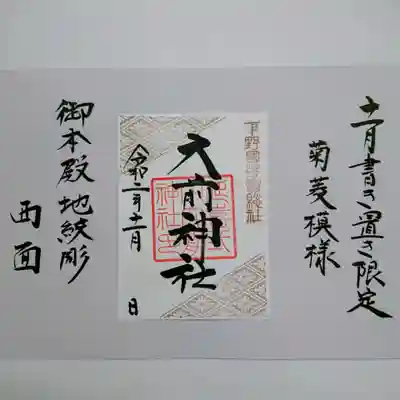 十一月書き置き限定
菊菱模様
下野國式内社
大前神社
令和二年十一月 日
御本殿地紋彫
西面